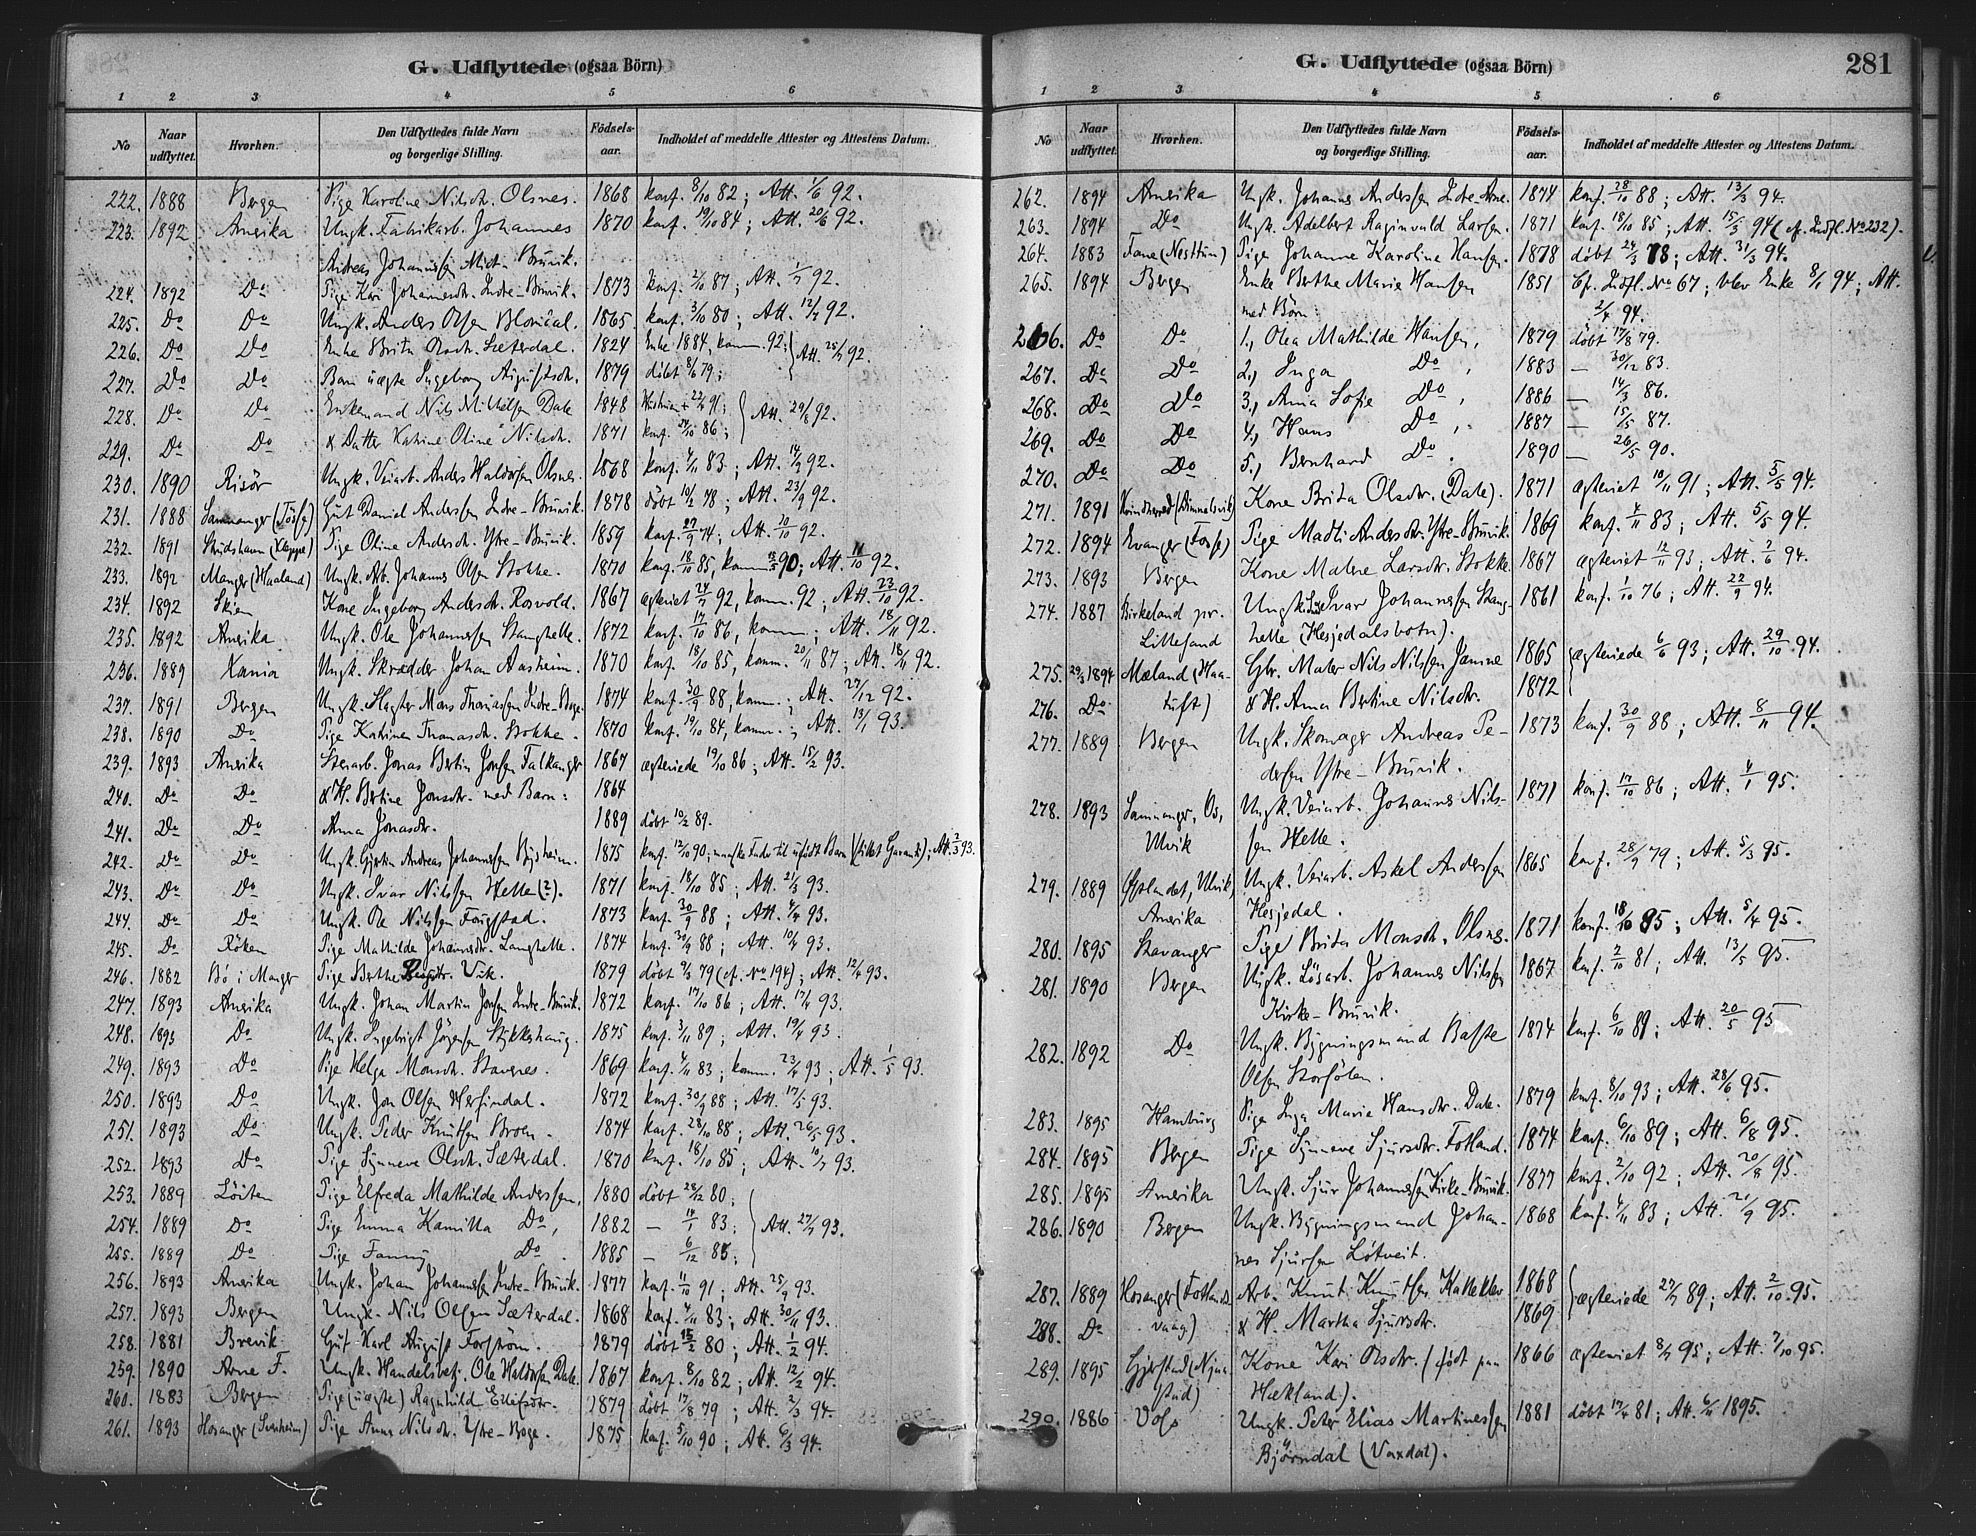 G. Udflyttede (ogsaa Börn)
1 2 3 4 5 6
No Naar udflyttet. Hvorhen. Den Udflyttedes fulde Navn og borgerlige Stilling. Födsels-aar. Indholdet af meddelte Attester og Attestens Datum.
222. 1888 Bergen Pige Karoline Nilsdr. Olsnes. 1868 konf. 8/10 82; Att. 1/6 92.
223. 1892 Amerika Ungk. Fabrikarb. Johannes 1870 konf. 19/10 84; Att. 20/6 92.
Andreas Johannessen Midt-Bruvik.
224. 1892 Do Pige Kari Johannesdr. Indre-Bruvik. 1873 konf. 2/10 87; Att. 1/7 92.
225. Do Do Ungk. Anders Olsen Blomdal. 1865 konf. 3/10 80; Att. 12/7 92.
226. Do Do Enke Brita Olsdr. Sæterdal. 1824 Enke 1884, komm. 92; Att. 25/7 92.
227. Do Do Barn uægte Ingeborg Augustsdr. 1879 döbt 8/6 79;
228. Do Do Enkemand Nils Mikkelsen Dale 1848 Hustruen + 22/7 91; Att. 29/8 92.
229. Do Do & Datter Katrine Oline Nilsdr. 1871 konf. 24/10 86;
230. 1890 Risör Ungk. Veiarb. Anders Haldorsen Olsnes. 1868 konf. 4/11 83; Att. 14/9 92.
231. 1888 Samnanger (Tösse) Gut Daniel Andersen Indre-Bruvik. 1878 döbt 10/2 78; Att. 23/9 92.
232. 1891 Skudshavn (Kleppe) Pige Oline Andersdr. Ytre-Bruvik. 1859 konf. 27/9 74; Att. 10/10 92.
233. 1892 Manger (Haaland) Ungk. Arb. Johannes Olsen Stokke. 1870 konf. 18/10 85, komm. 90; Att. 11/10 92.
234. 1892 Skien Kone Ingeborg Andersdr. Rosvold. 1867 ægteviet 24/7 92, komm. 92; Att. 23/10 92.
235. 1892 Amerika. Ungk. Ole Johannessen Stanghelle. 1872 konf. 17/10 86, komm.; Att. 18/11 92.
236. 1889 Xania Ungk. Skrædder Johan Aasheim. 1870 konf. 18/10 85, komm. 20/11 87; Att. 18/11 92.
237. 1891 Bergen Ungk. Slagter Mons Thomassen Indre-Boge. 1874 konf. 30/9 88, komm.; Att. 27/12 92.
238. 1890 Do Pige Katrina Tomasdr. Stokke. 1870 konf. 19/10 84, komm.; Att. 13/1 93.
239. 1893 Amerika Stenarb. Jonas Bertin Jonsen Falkanger 1867 ægteviede 19/10 86; Att. 15/2 93.
240. Do Do & H. Bertine Jonsdr. med Barn: 1864
241. Do Do Anna Jonasdr. 1889 döbt 10/2 89.
242. Do Do Ungk. Gjertin Andreas Johannessen 1875 konf. 12/10 90; Att. 2/3 93.
243. Do Do Ungk. Ivar Nilssen Helle (2). 1871 konf. 18/10 85; Att. 21/3 93.
244. Do Do Ungk. Ole Nilsen Fargstad. 1873 konf. 30/9 88; Att. 4/4 93.
245. Do Röken Pige Mathilde Johannesdr. Langhelle. 1874 konf. 30/9 88; Att. 10/4 93.
246. 1882 Bö i Manger Pige Berthe Vik. 1879 döbt 9/3 79 (cf. No 194); Att. 12/4 93.
247. 1893 Amerika Ungk. Johan Martin Jonsen Indre-Bruvik. 1872 konf. 17/10 86; Att. 17/4 93.
248. 1893 Do Ungk. Ingebrigt Jörgensen Stykkeshaug. 1875 konf. 3/11 89; Att. 19/4 93.
249. 1893 Do Pige Helga Monsdr. Stavenes. 1869 konf. 4/11 83; komm. 23/4 93; Att. 1/5 93.
250. 1893 Do Ungk. Jon Olsen Herfindal. 1872 konf. 30/9 88; Att. 17/5 93.
251. 1893 Do Ungk. Peder Knutsen Broen. 1874 konf. 28/10 88; Att. 26/5 93.
252. 1893 Do Pige Synneve Olsdr. Sæterdal. 1870 konf. 18/10 85; Att. 10/7 93.
253. 1889 Löiten Pige Elfreda Mathilde Anderssen, 1880 döbt 28/12 80;
254. 1889 Do Pige Emma Kamilla Do, 1882 — 14/1 83; Att. 27/7 93.
255. 1889 Do Pige Fanny Do. 1885 — 6/12 85;
256. 1893 Amerika Ungk. Johan Johannessen Indre-Bruvik. 1877 konf. 11/10 91; Att. 25/9 93.
257. 1893 Bergen Ungk. Nils Olsen Sæterdal. 1868 konf. 4/11 83; Att. 30/11 93.
258. 1881 Brevik Gut Karl August Forström. 1879 döbt 15/2 80; Att. 1/2 94.
259. 1890 Arne F. Ungk. Handelsbetj. Ole Haldorsen Dale. 1867 konf. 8/10 82; Att. 12/2 94.
260. 1883 Bergen Pige (uægte) Ragnhild Ellefsdr. 1879 döbt 17/8 79; Att. 2/3 94.
261. 1893 Hosanger (Sundheim) Pige Anna Nilsdr. Ytre-Boge. 1875 konf. 5/10 90; Att. 6/3 94.
G. Udflyttede (ogsaa Börn) 281
1 2 3 4 5 6
No Naar udflyttet. Hvorhen. Den Udflyttedes fulde Navn og borgerlige Stilling. Födsels-aar. Indholdet af meddelte Attester og Attestens Datum.
262. 1894 Amerika Ungk. Johannes Anderssen Indre-Arne. 1874 konf. 28/10 88; Att. 13/3 94.
263. 1894 Do Ungk. Adelbert Raginvald Larsen. 1871 konf. 18/10 85; Att. 15/3 94 (cf. Indfl. No 232).
264. 1883 Fane (Nesttun) Pige Johanne Karoline Hansen. 1878 döbt 24/3 78; Att. 31/3 94.
265. 1894 Bergen Enke Berthe Marie Hansen 1851 Cf. Indfl. No 67; blev Enke 8/1 94; Att.
med Börn: 2/4 94.
266. Do Do 1., Olea Mathilde Hansen, 1879 döbt 17/8 79.
267. Do Do 2., Inga Do, 1883 — 30/12 83.
268. Do Do 3., Anna Sofie Do, 1886 — 14/3 86.
269. Do Do 4., Hans Do, 1887 — 15/5 87.
270. Do Do 5., Bernhard Do. 1890 — 26/5 90.
271. 1891 Kvindherred (Dimmelsvik) Kone Brita Olsdr. (Dale). 1871 ægteviet 10/11 91; Att. 5/5 94.
272. 1894 Evanger (Fosse) Pige Madli Andersdr. Ytre-Bruvik. 1869 konf. 4/11 83; Att. 5/5 94.
273. 1893 Bergen Kone Malene Larsdr. Stokke. 1867 ægteviet 12/11 93; Att. 7/6 94.
274. 1887 Birkeland pr. Ungk. Ivar Johannessen Stang- 1861 konf. 1/10 76; Att. 22/9 94.
Lillesand helle (Hesjedalsbotn).
275. 29/3 1894 Mæland (Haa- Gbr. Maler Nils Nilssen Jamne 1865 ægteviede 6/6 93; Att. 29/10 94.
276. Do tuft) & H. Anna Bertine Nilsdr. 1872
277. 1889 Bergen Ungk. Skomager Andreas Pe- 1873 konf. 30/9 88; Att. 8/11 94.
dersen Ytre-Bruvik.
278. 1893 Samnanger, Os, Ungk. Veiarb. Johannes Nils- 1871 konf. 17/10 86; Att. 4/1 95.
Ulvik sen Helle.
279. 1889 (Östlandet, Ulvik) Ungk. Veiarb. Askel Anderssen 1865 konf. 28/9 79; Att. 5/3 95.
Amerika Hesjedal.
280. 1895 Stavanger Pige Brita Monsdr. Olsnes. 1871 konf. 18/10 85; Att. 5/4 95.
281. 1890 Bergen Ungk. Lösarb. Johannes Nilssen 1867 konf. 2/10 81; Att. 13/5 95.
Kirke-Bruvik.
282. 1892 Do Ungk. Bygningsmand Baste 1874 konf. 6/10 89; Att. 20/5 95
Olsen Storfölen.
283. 1895 Hamburg Pige Inga Marie Hansdr. Dale. 1879 konf. 8/10 93; Att. 28/6 95.
284. 1895 Bergen Pige Synneve Sjursdr. Fotland. 1874 konf. 6/10 89; Att. 6/8 95.
285. 1895 Amerika Ungk. Sjur Johannessen Kirke-Bruvik. 1877 konf. 2/10 92; Att. 20/8 95.
286. 1890 Bergen Ungk. Bygningsmand Johan- 1868 konf. 4/11 83; Att. 21/9 95.
nes Sjursen Lötveit.
287. 1889 Hosanger (Fotlands- Arb. Knut Knutsen Kalleklev 1868 ægteviede 27/7 89; Att. 2/10 95.
288. Do vaag) & H. Martha Sjursdr. 1869
289. 1895 Gjerstad (Njaa- Kone Kari Olsdr. (født paa 1866 ægteviet 8/7 95; Att. 7/10 95.
stad) Hækland).
290. 1886 Voss Ungk. Peter Elias Martinessen 1881 döbt 17/4 81; Att. 6/11 1895.
Björndal (Vaxdal).